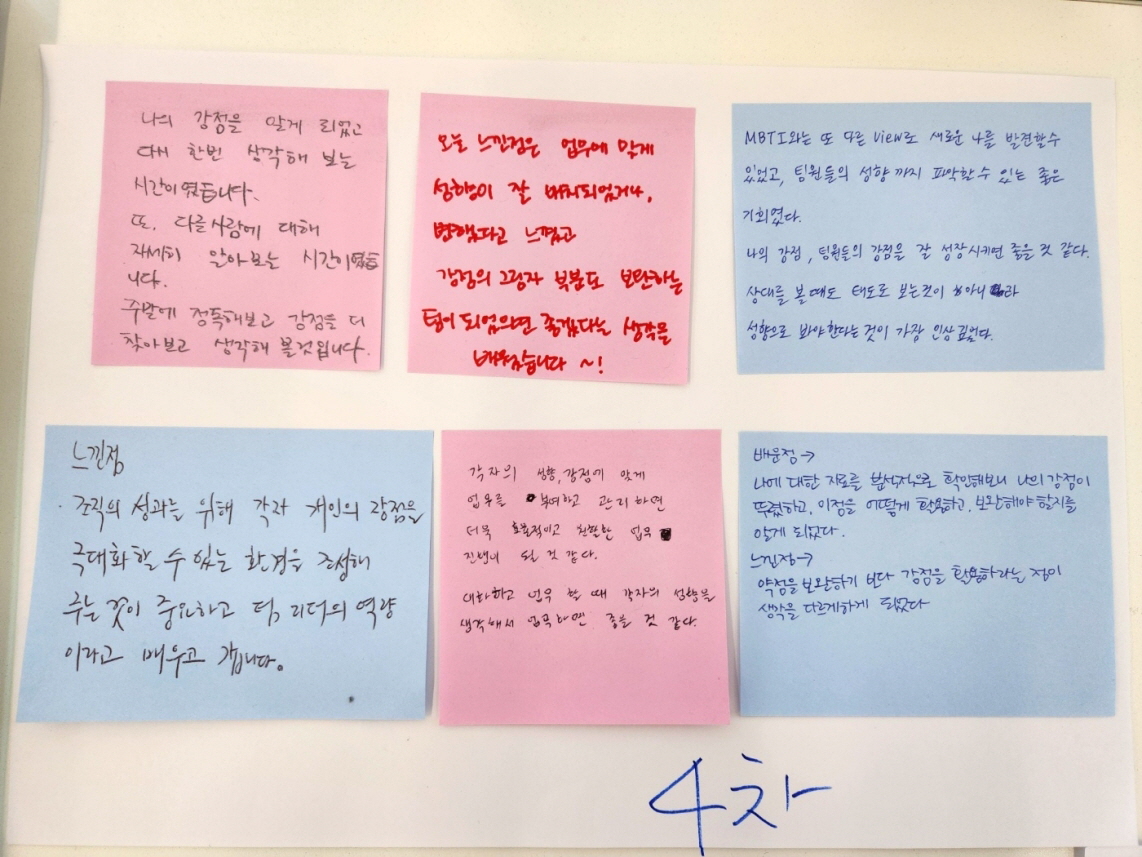 나의 강점을 알게 되었고
다시 한번 생각해 보는
시간이였습니다.
또, 다를사람에 대해
자세히 알아보는 시간이였습
니다.
주말에 정독해보고 강점을 더
찾아보고 생각해 볼것입니다.
오늘 느낀점은 업무에 맞게
성향이 잘 배치되었거나,
변했다고 느꼈고
강점의 그림자 부분도 보완하는
팀이 되었으면 좋겠다는 생각을
배웠습니다 ~!
MBTI와는 또 다른 View로 새로운 나를 발견할 수
있었고, 팀원들의 성향 까지 파악할 수 있는 좋은
기회였다.
나의 강점, 팀원들의 강점을 잘 성장시키면 좋을 것 같다.
상대를 볼 때도 태도로 보는것이 아니라
성향으로 봐야 한다는 것이 가장 인상 깊었다.
느낀점
· 조직의 성과는 위해 각자 개인의 강점을
극대화 할 수 있는 환경을 조성해
주는 것이 중요하고 더, 리더의 역량
이라고 배우고 갑니다.
각자의 성향, 강점에 맞게
업무를 부여하고 관리하면
더욱 효율적이고 친한 업무
진행이 될 것 같다.
대화하고 업무 할 때 각자의 성향을
생각해서 업무하면 좋을 것 같다.
배운점 →
나에 대한 자료를 분석적으로 확인해보니 나의 강점이
뚜렸하고, 이점을 어떻게 활용하고, 보완해야 할지를
알게 되었다.
느낀점→
약점을 보완하기 보다 강점을 활용하라는 점이
생각을 다르게하게 되었다
4차